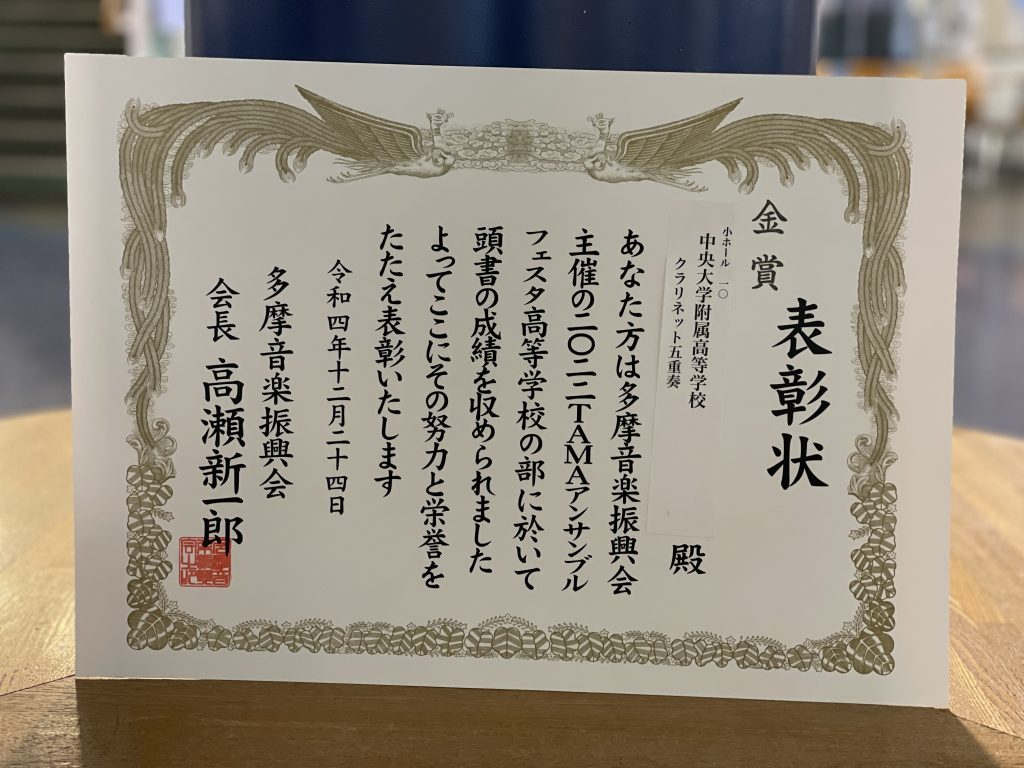 表彰状
金賞
小ホール 一〇
中央大学附属高等学校
クラリネット五重奏
殿
あなた方は多摩音楽振興会
主催の二〇二二TAMAアンサンブル
フェスタ高等学校の部に於いて
頭書の成績を収められました
よってここにその努力と栄誉を
たたえ表彰いたします
令和四年十二月二十四日
多摩音楽振興会
会長 高瀬新一郎